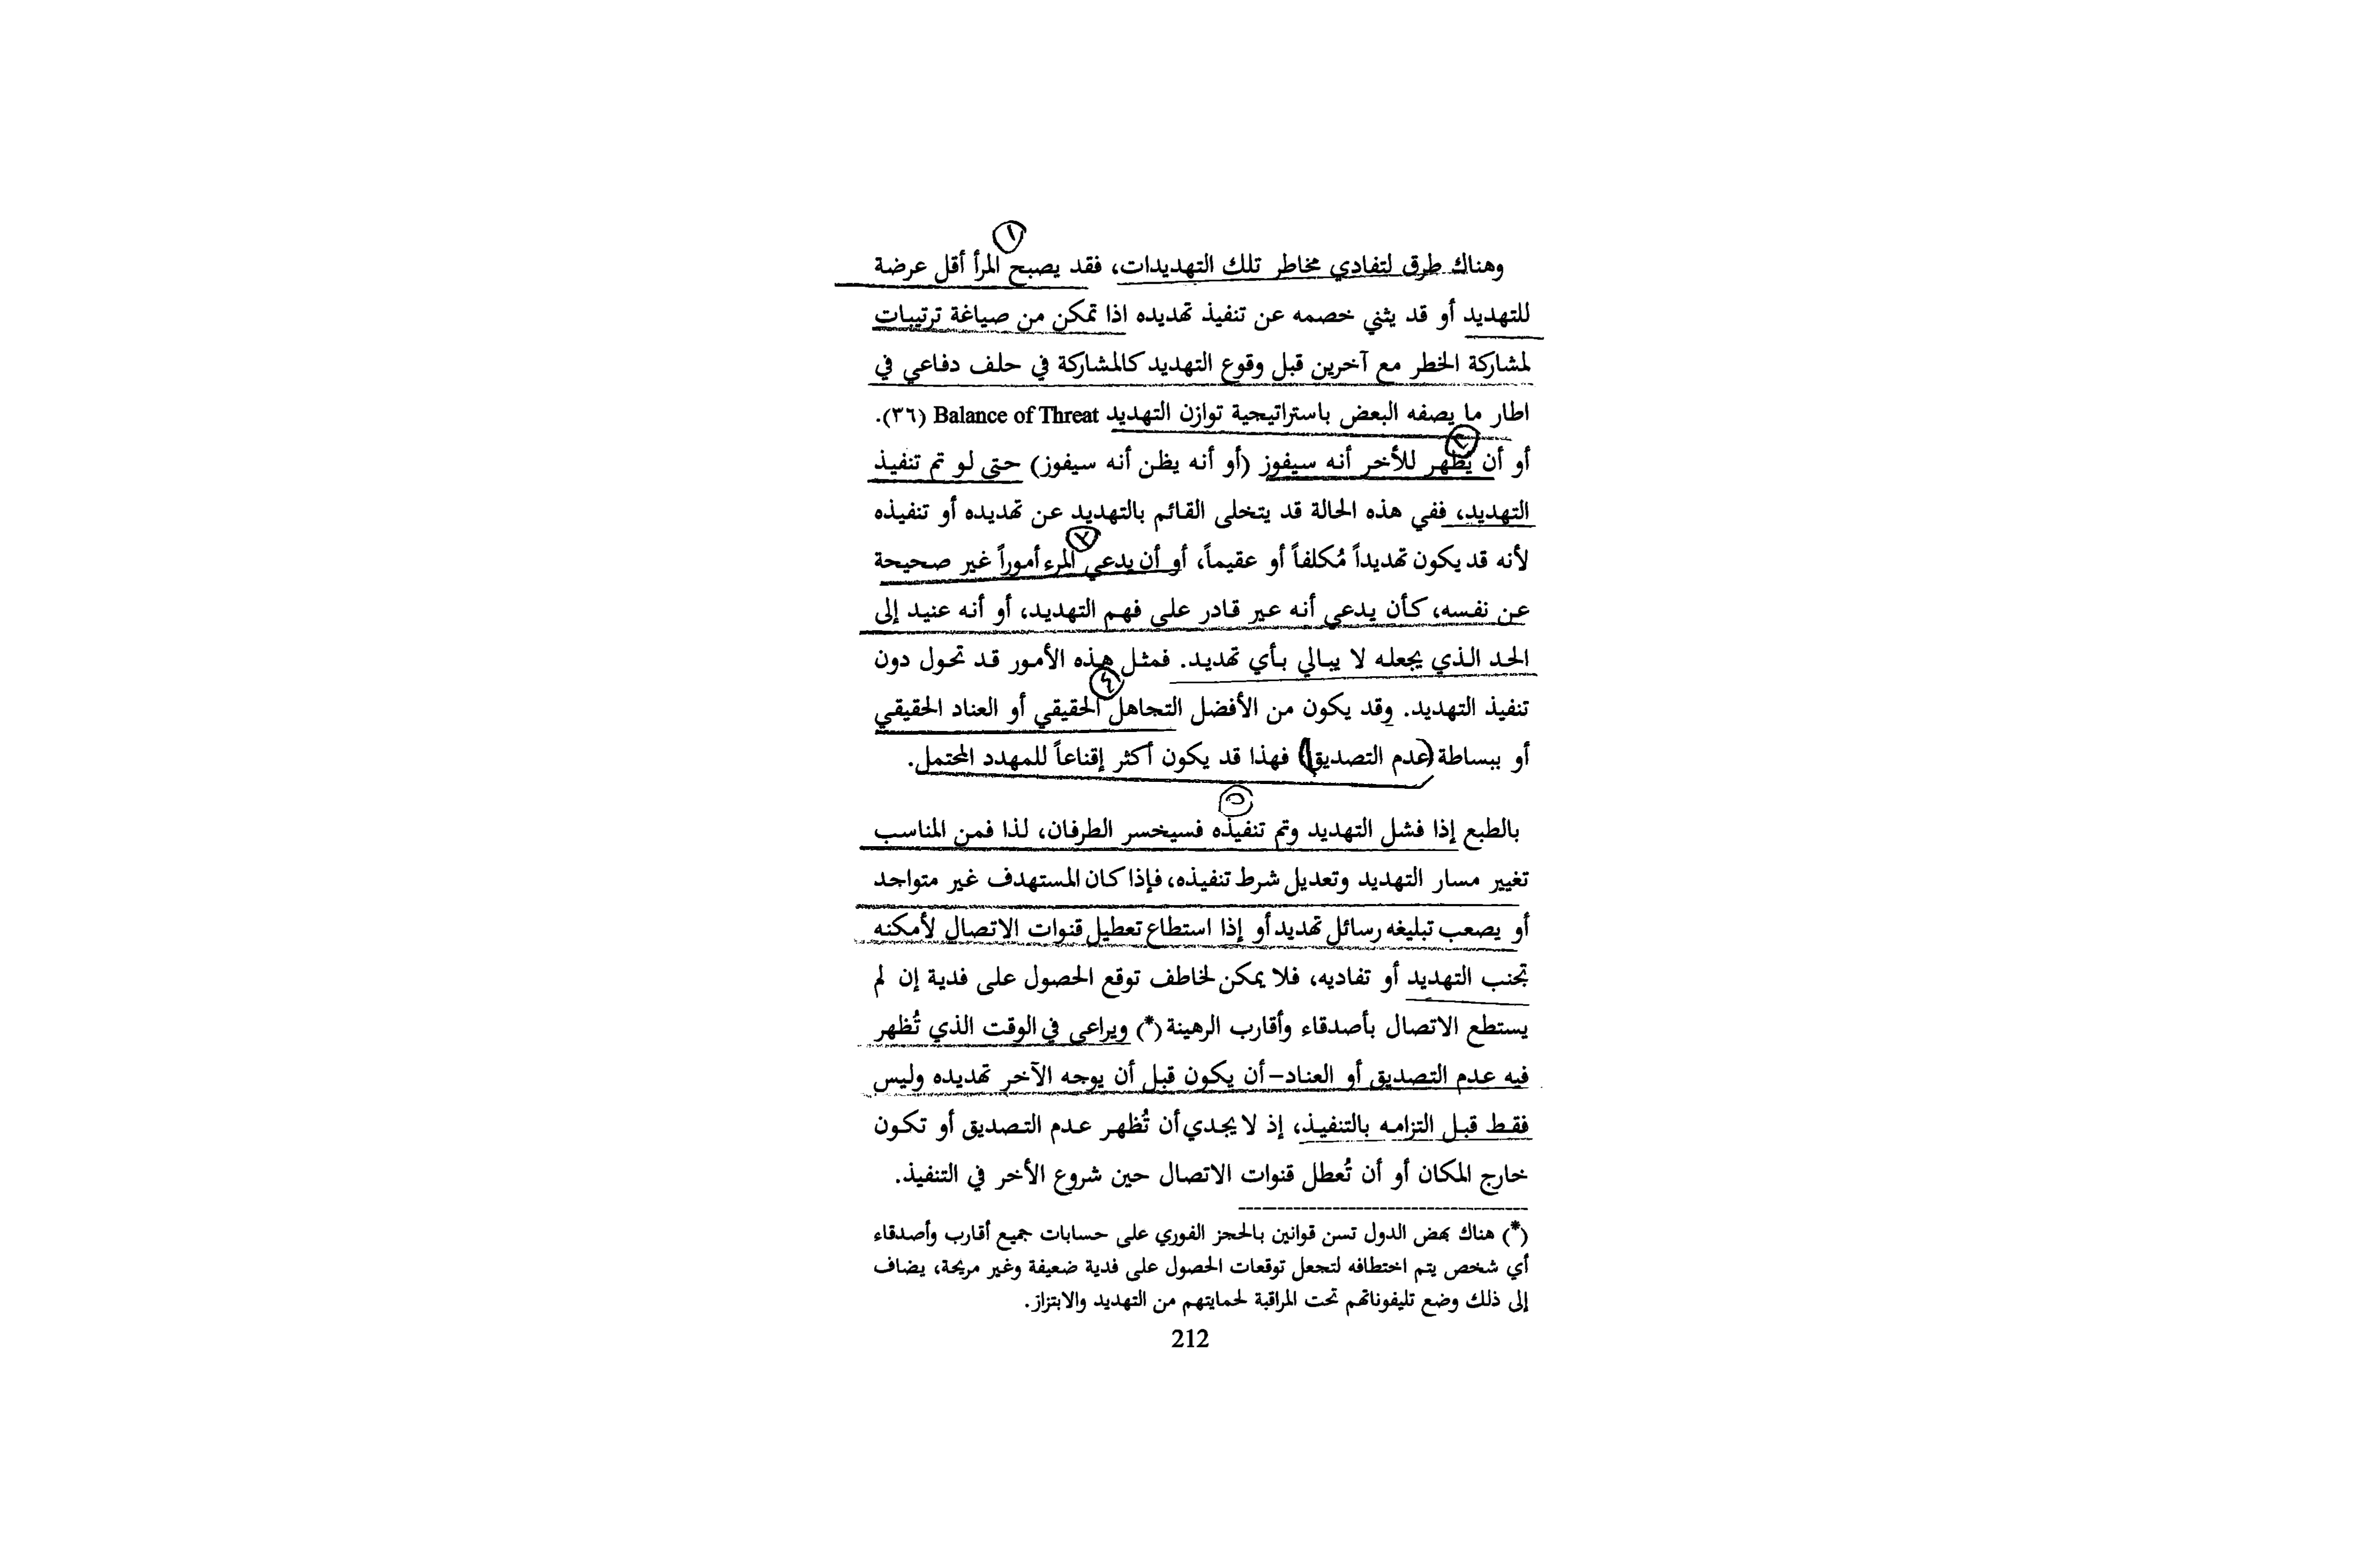 ١
وهناك طرق لتفادي مخاطر تلك التهديدات، فقد يصبح المرأ أقل عرضة
للتهديد أو قد يثني خصمه عن تنفيذ تهديده اذا تمكن من صياغة ترتيبات
لمشاركة الخطر مع آخرين قبل وقوع التهديد كالمشاركة في حلف دفاعي في
اطار ما يصفه البعض باستراتيجية توازن التهديد Balance of Threat (٣٦).
٢
أو أن يُظهر للأخر أنه سيفوز (أو أنه يظن أنه سيفوز) حتى لو تم تنفيذ
التهديد، ففي هذه الحالة قد يتخلى القائم بالتهديد عن تهديده أو تنفيذه
٣
لأنه قد يكون تهديداً مُكلفاً أو عقيماً، أو أن يدعي المرء أموراً غير صحيحة
عن نفسه، كأن يدعي أنه عير قادر على فهم التهديد، أو أنه عنيد إلى
الحد الذي يجعله لا يبالي بأي تهديد. فمثل هذه الأمور قد تحول دون
٤
تنفيذ التهديد. وقد يكون من الأفضل التجاهل الحقيقي أو العناد الحقيقي
أو ببساطة (عدم التصديق) فهذا قد يكون أكثر إقناعاً للمهدد المحتمل.
٥
بالطبع إذا فشل التهديد وتم تنفيذه فسيخسر الطرفان، لذا فمن المناسب
تغيير مسار التهديد وتعديل شرط تنفيذه، فإذا كان المستهدف غير متواجد
أو يصعب تبليغه رسائل تهديد أو إذا استطاع تعطيل قنوات الاتصال لأمكنه
تجنب التهديد أو تفاديه، فلا يمكن لخاطف توقع الحصول على فدية إن لم
يستطع الاتصال بأصدقاء وأقارب الرهينة (*) ويراعى في الوقت الذي تُظهر
فيه عدم التصديق أو العناد– أن يكون قبل أن يوجه الآخر تهديده وليس
فقط قبل التزامه بالتنفيذ، إذ لا يجدي أن تُظهر عدم التصديق أو تكون
خارج المكان أو أن تُعطل قنوات الاتصال حين شروع الأخر في التنفيذ.
(*) هناك بعض الدول تسن قوانين بالحجز الفوري على حسابات جميع أقارب وأصدقاء
أي شخص يتم اختطافه لتجعل توقعات الحصول على فدية ضعيفة وغير مريحة، يضاف
إلى ذلك وضع تليفوناتهم تحت المراقبة لحمايتهم من التهديد والابتزاز.
212